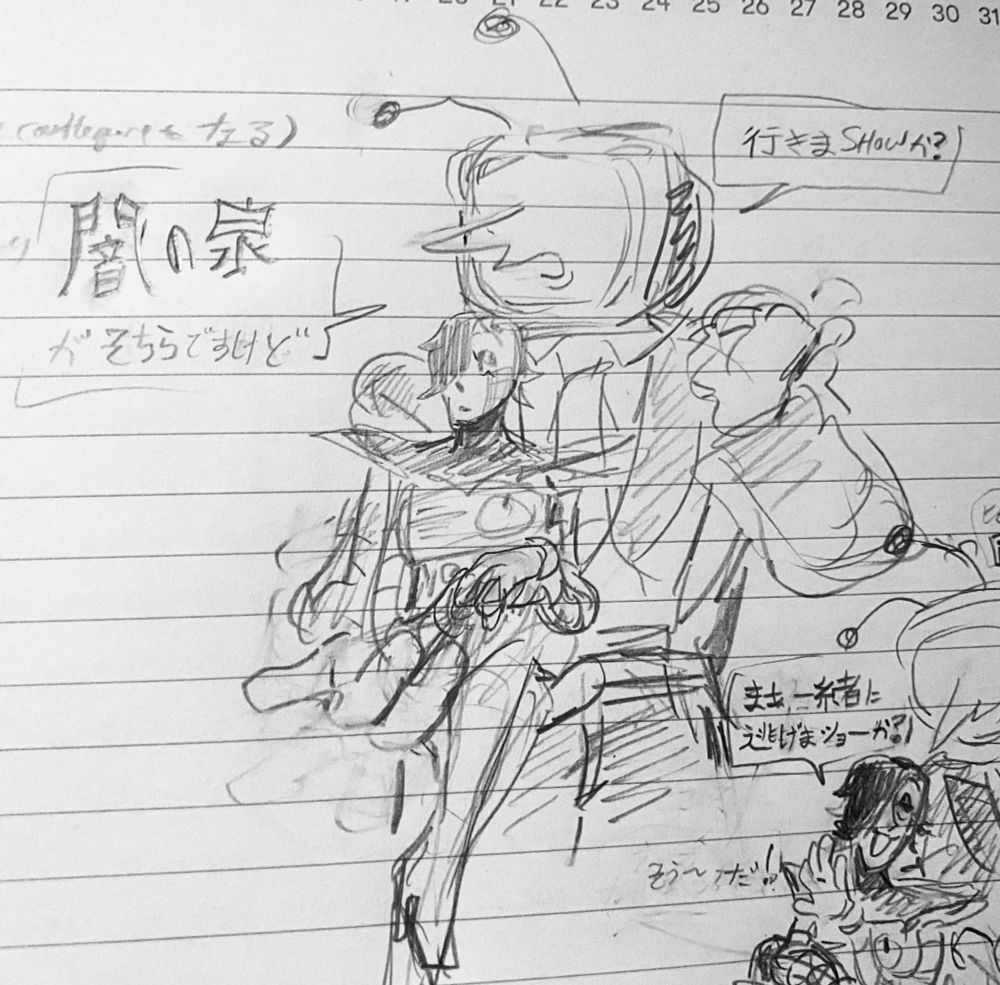 22 23 24 25 26 27 28 29 30 31
なる)
行きまSHOWか?
闇の泉
がそちらですけど
まぁ、一緒に
逃げまショーか?!
そう〜だ!!